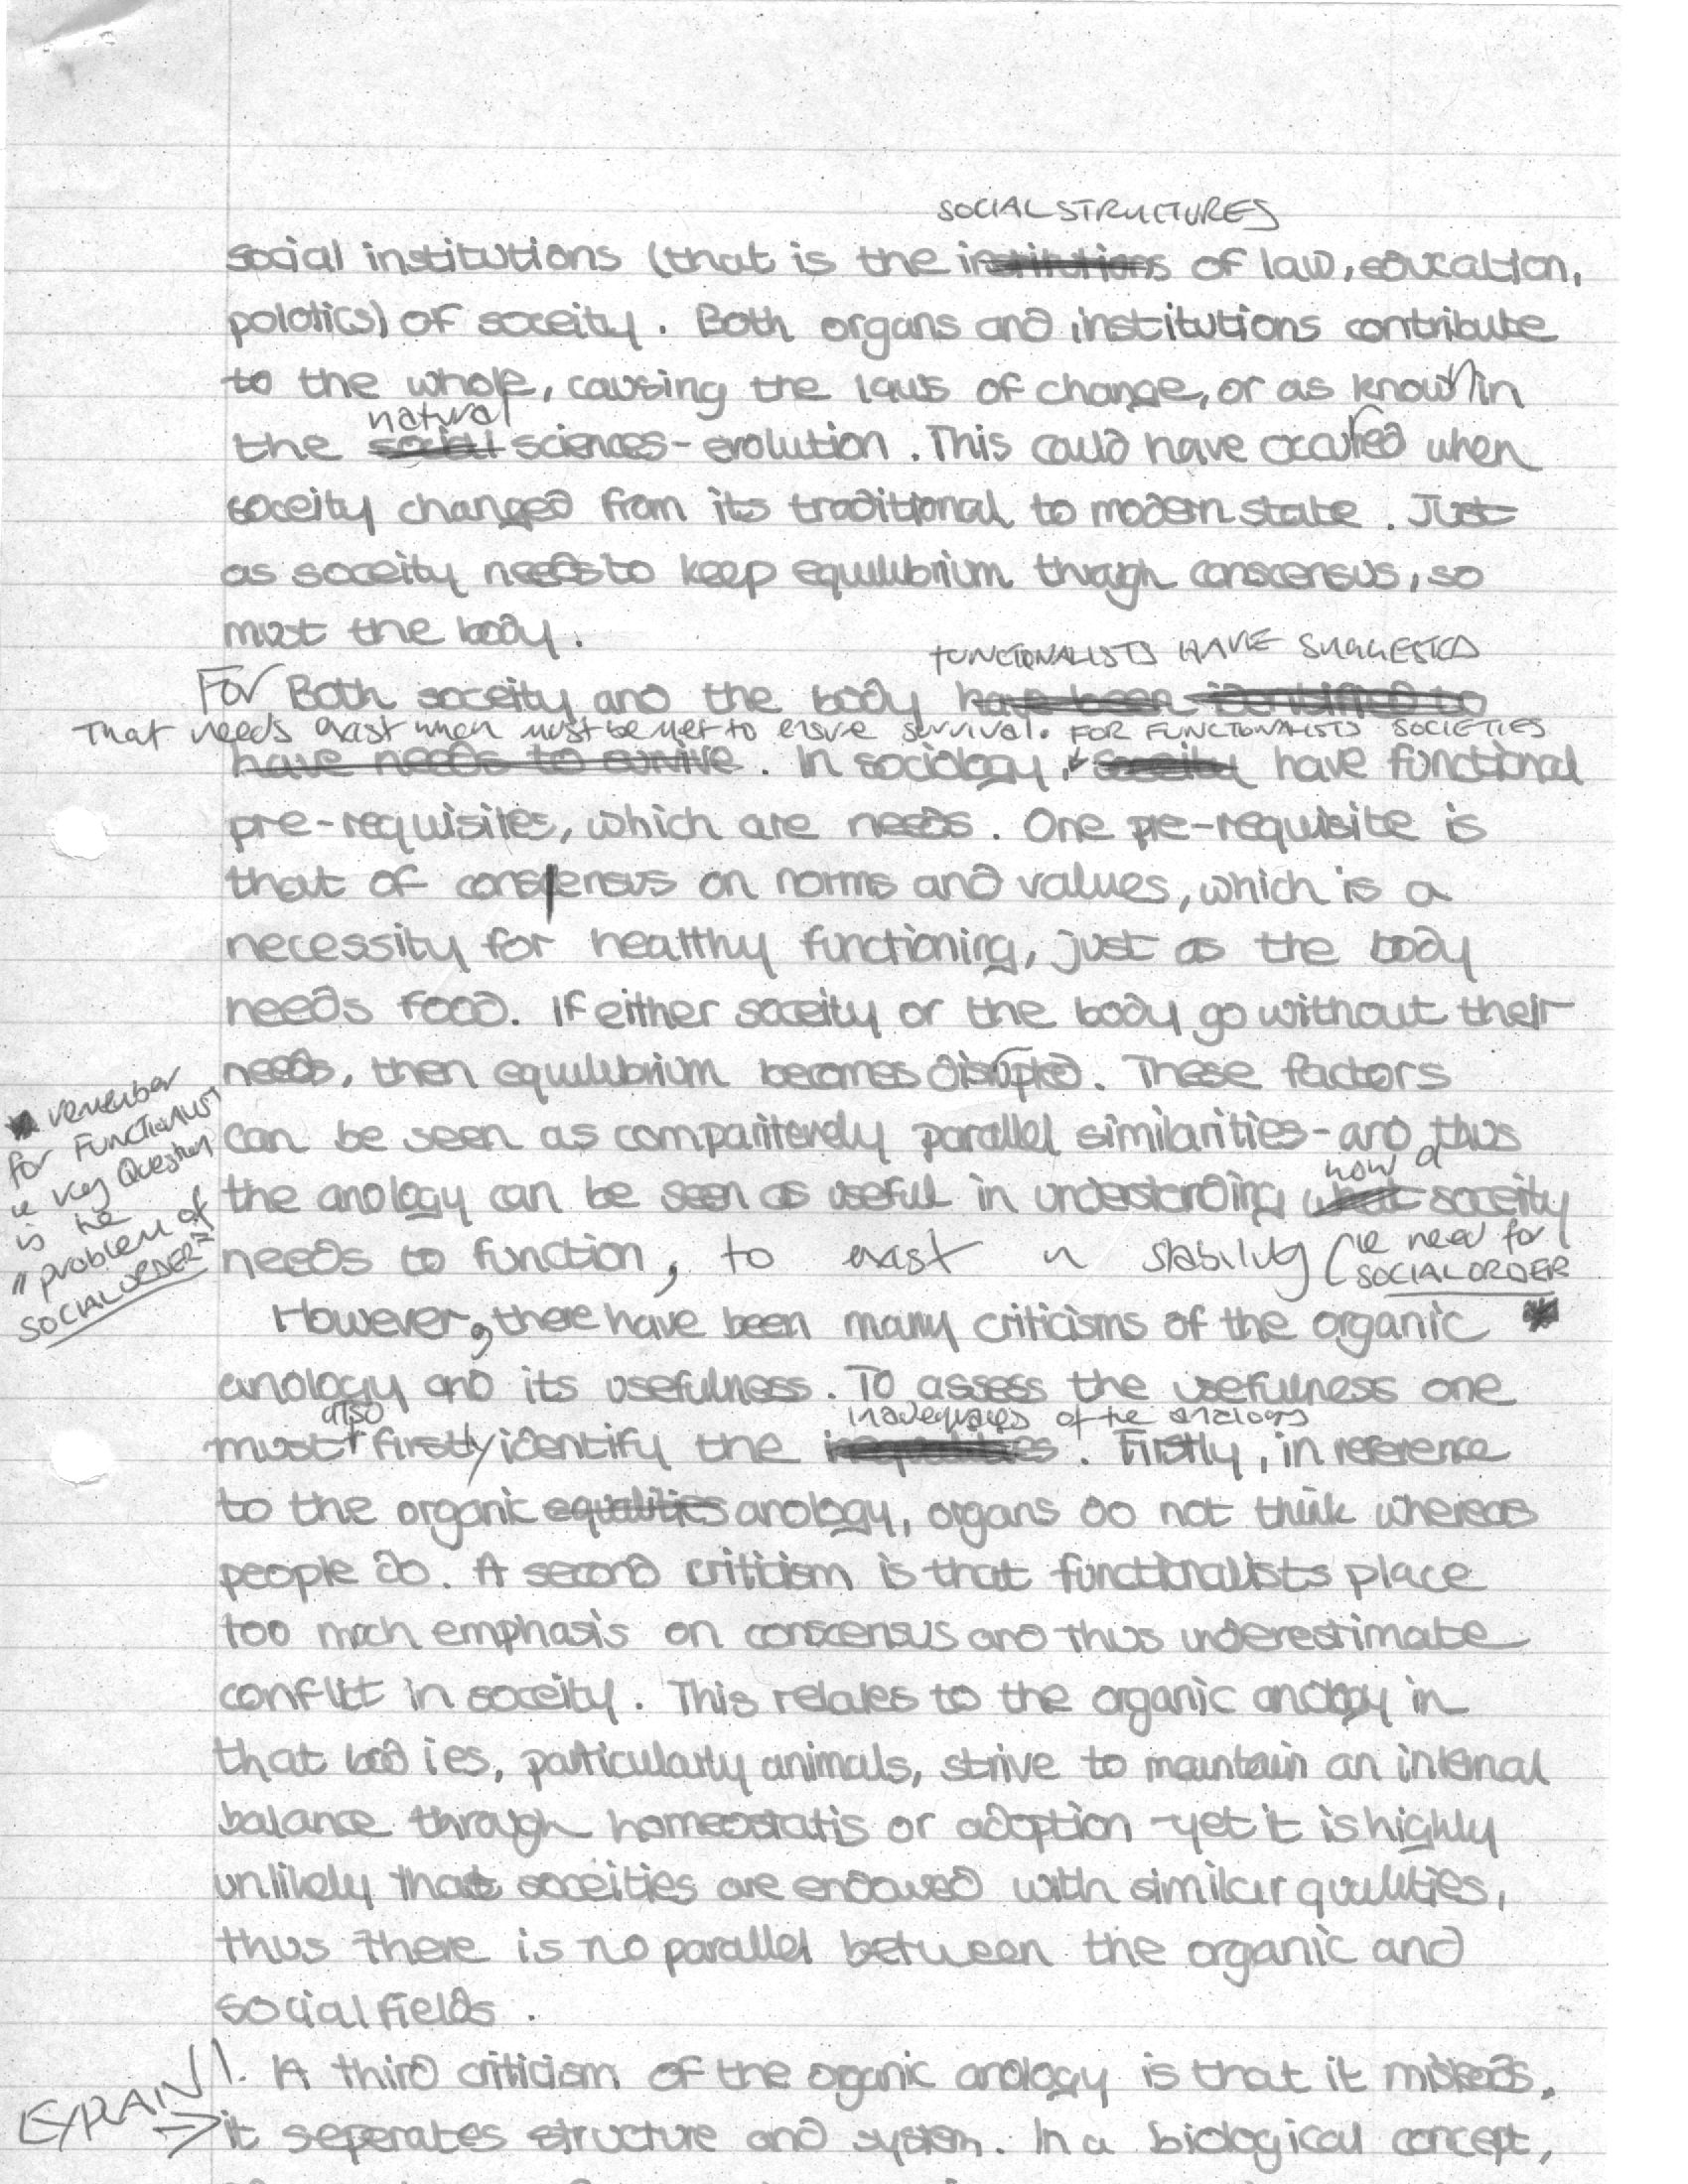 SOCIAL STRUCTURES
social institutions (that is the institutions of law, education,
polotics) of soceity. Both organs and institutions contribute
to the whole, causing the laws of change, or as known in
natural
the social sciences - evolution. This could have occurred when
soceity changed from its traditional to modern state. Just
as soceity needs to keep equilibrium through conscensus, so
must the body.
FUNCTIONALISTS HAVE SUGGESTED
For Both soceity and the body have been identified to
That needs exist when must be met to ensure survival. FOR FUNCTIONALISTS SOCIETIES
have needs to survive. In sociology, soceity have functional
pre-requisites, which are needs. One pre-requisite is
that of consensus on norms and values, which is a
necessity for healthy functioning, just as the body
needs food. If either soceity or the body go without their
needs, then equilibrium becomes disrupted. These factors
can be seen as comparitevely parallel similarities - and thus
how a
the anology can be seen as useful in understanding what soceity
needs to function, to exist in stability (ie need for
SOCIAL ORDER
remember
for FUNCTIONALIST
Key Question
is the
"problem of
SOCIAL ORDER"
However, there have been many criticisms of the organic
anology and its usefulness. To assess the usefulness one
also
inadequacies of the analogy
must firstly identify the inequalities. Firstly, in reference
to the organic equalities anology, organs do not think whereas
people do. A second critism is that functionalists place
too much emphasis on conscensus and thus underestimate
conflict in soceity. This relates to the organic anology in
that bodies, particularly animals, strive to maintain an internal
balance through homeostatis or adoption - yet it is highly
unlikely that soceities are endowed with similar qualities,
thus there is no parallel between the organic and
social fields.
EXPLAIN!
A third criticism of the organic anology is that it misleads,
it seperates structure and system. In a biological concept,